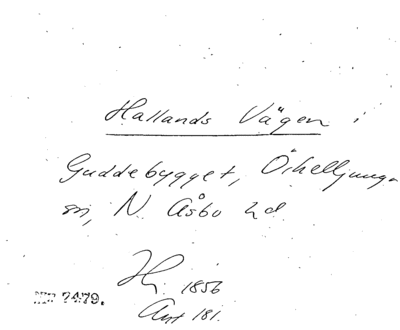 Hallands Vägen i
Guddebygget, Örkelljunga
sn, N. Åsbo hd.
1856
181.
7479.